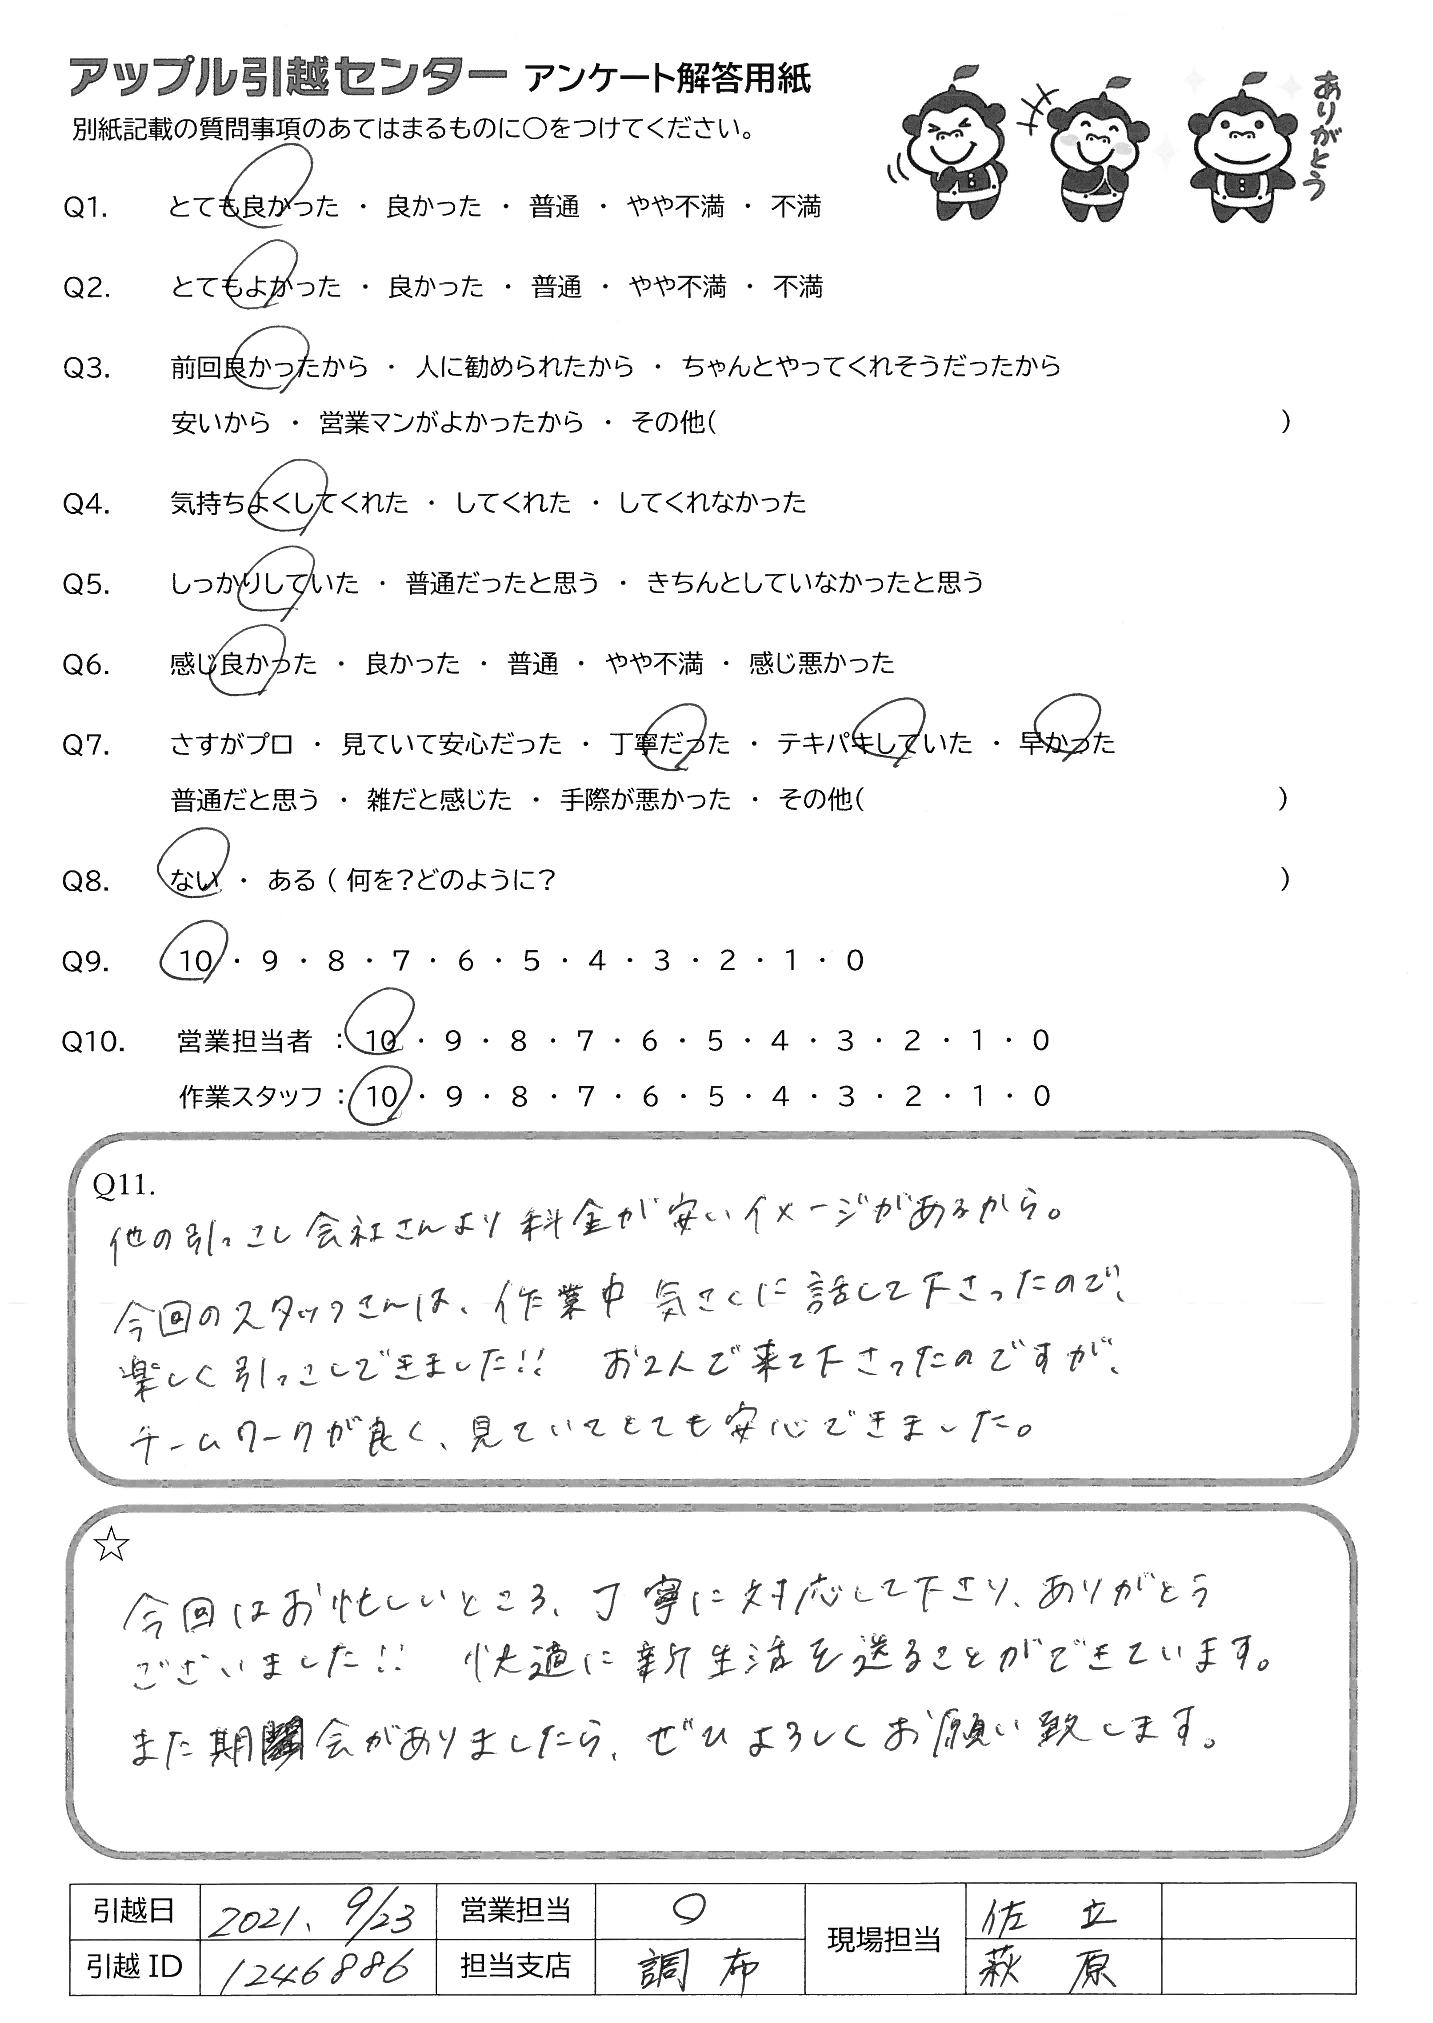 アップル引越センター アンケート解答用紙
ありがとう
別紙記載の質問事項のあてはまるものに○をつけてください。
Q1. とても良かった ・ 良かった ・ 普通 ・ やや不満 ・ 不満
Q2. とてもよかった ・ 良かった ・ 普通 ・ やや不満 ・ 不満
Q3. 前回良かったから ・ 人に勧められたから ・ ちゃんとやってくれそうだったから
安いから ・ 営業マンがよかったから ・ その他( )
Q4. 気持ちよくしてくれた ・ してくれた ・ してくれなかった
Q5. しっかりしていた ・ 普通だったと思う ・ きちんとしていなかったと思う
Q6. 感じ良かった ・ 良かった ・ 普通 ・ やや不満 ・ 感じ悪かった
Q7. さすがプロ ・ 見ていて安心だった ・ 丁寧だった ・ テキパキしていた ・ 早かった
普通だと思う ・ 雑だと感じた ・ 手際が悪かった ・ その他( )
Q8. ない ・ ある ( 何を?どのように? )
Q9. 10 ・ 9 ・ 8 ・ 7 ・ 6 ・ 5 ・ 4 ・ 3 ・ 2 ・ 1 ・ 0
Q10. 営業担当者 : 10 ・ 9 ・ 8 ・ 7 ・ 6 ・ 5 ・ 4 ・ 3 ・ 2 ・ 1 ・ 0
作業スタッフ : 10 ・ 9 ・ 8 ・ 7 ・ 6 ・ 5 ・ 4 ・ 3 ・ 2 ・ 1 ・ 0
Q11.
他の引っこし会社さんより料金が安いイメージがあるから。
今回のスタッフさんは、作業中気さくに話して下さったので、
楽しく引っこしできました!! お2人で来て下さったのですが、
チームワークが良く、見ていてとても安心できました。
☆
今回はお忙しいところ、丁寧に対応して下さり、ありがとう
ございました!! 快適に新生活を送ることができています。
また期会がありましたら、ぜひよろしくお願い致します。
引越日 2021、9/23 営業担当 ○ 現場担当 佐立
引越ID 1246886 担当支店 調布 萩原